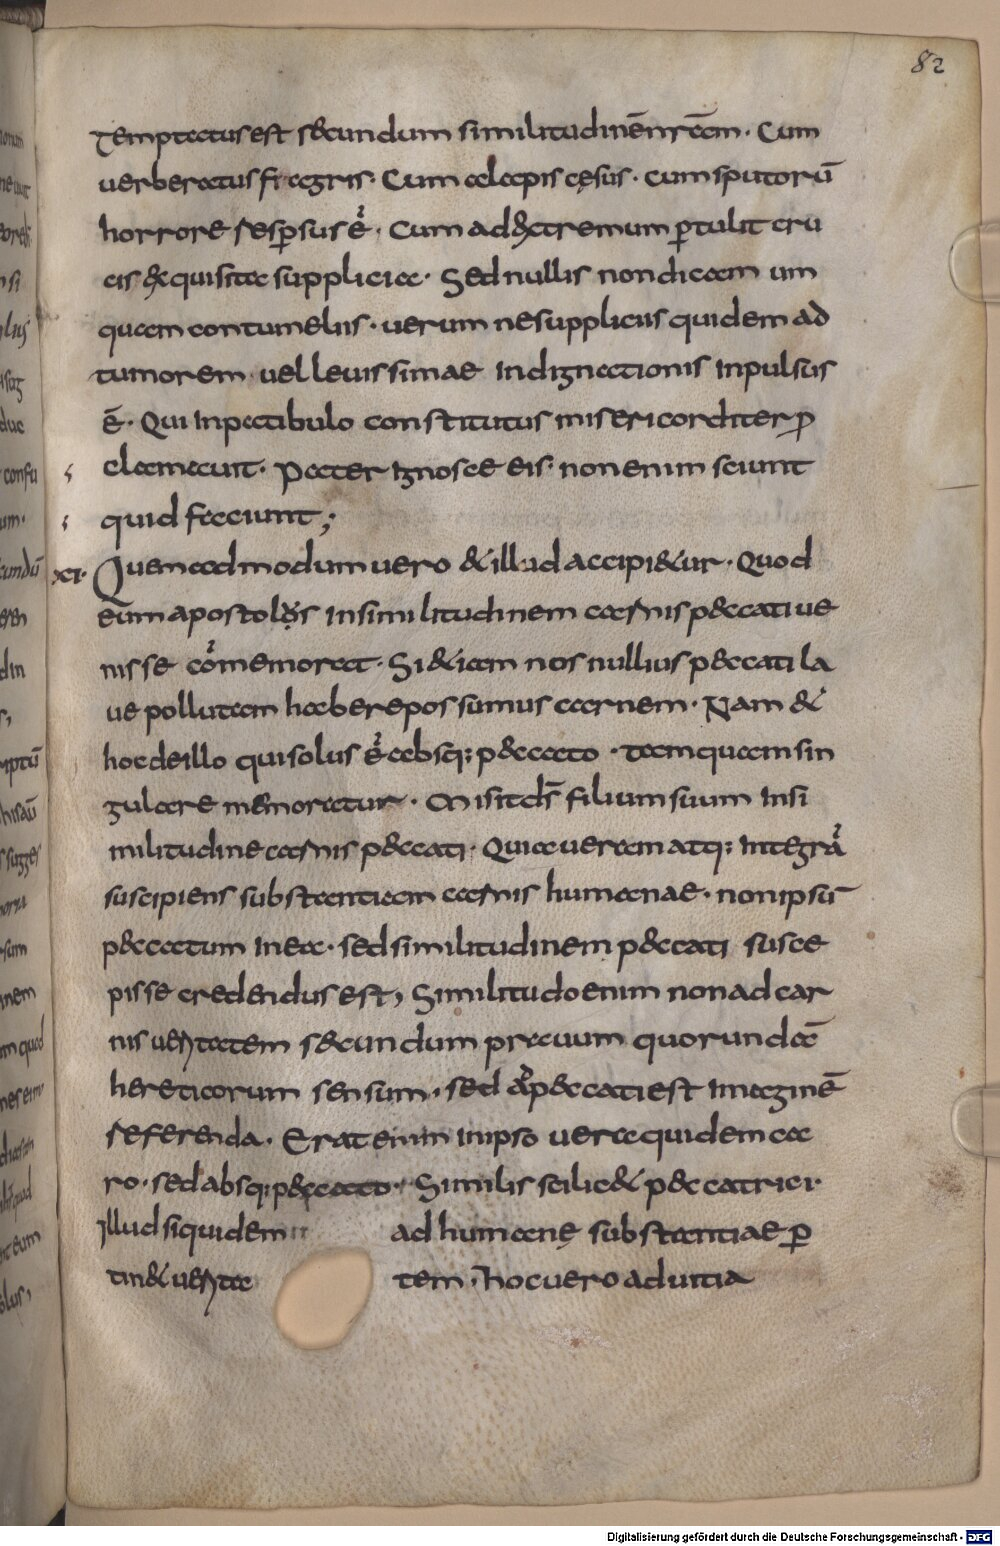 82
temptatus est secundum similitudinē nr̄eam. Cum
uerberatus flagris. Cum alapis cęsus. cum sputorū
horrore respsus ē. Cum ad extremum ptulit cru
cis exquisitae supplicia. Sed nullis non dicam um
quam contumeliis. uerum ne suppliciis quidem ad
tumorem uel leuissimae indignationis inpulsus
ē. Qui in patibulo constitutus misericorditer p
clamauit. Pater ignosce eis. non enim sciunt
quid faciunt;
XI. Quemadmodum uero & illud accipi&ur. Quod
eum apostolus in similitudinem carnis peccati ue
nisse cōmemorat. Si &iam nos nullius peccati la
ue pollutam habere possumus carnem. Nam &
hoc de illo qui solus ē absq; peccato. tamquam sin
gulare memoratur. Misit ds̄ filium suum in si
militudine carnis peccati. Quia ueram atq; integrā
suscipiens substantiam carnis humanae. non ipsū
peccatum in ea. sed similitudinem peccati susce
pisse credendus est, Similitudo enim non ad car
nis ueritatem secundum prauum quorundā
hereticorum sensum. sed ad peccati est imaginē
referenda. Erat enim in ipso uera quidem ca
ro. sed absq; peccato. Similis scilic& peccatrici.
Illud siquidem ad humanę substantiae p
tin& uerita tem. hoc uero ad uitia
Digitalisierung gefördert durch die Deutsche Forschungsgemeinschaft - DFG